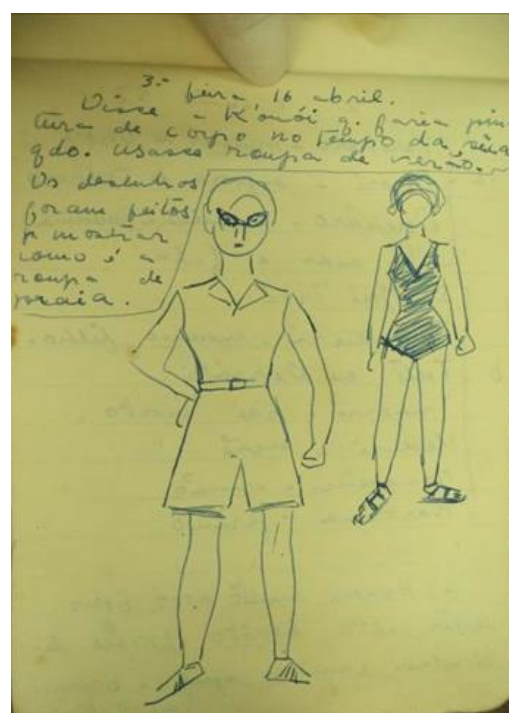 3.ª feira 16 abril.
Disse a K'onói q. faria pin-
tura de corpo no tempo da sêca
qdo. usasse roupa de verão.
Os desenhos
foram feitos
p mostrar
como é a
roupa de
praia.